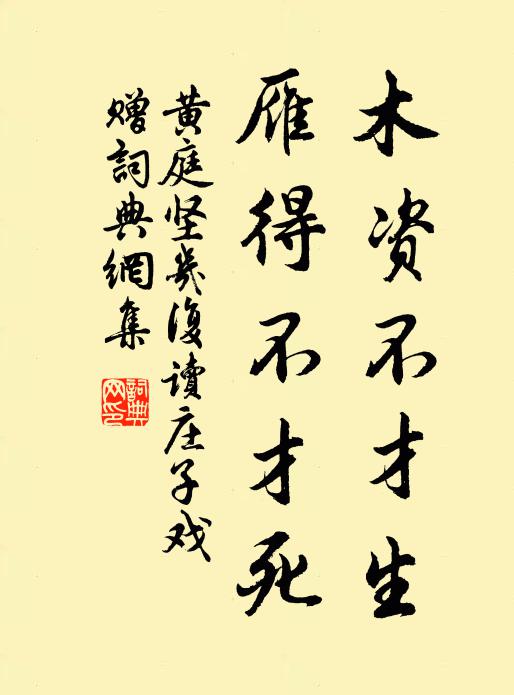 木资不才生
雁得不才死
黄庭坚几复读庄子戏
赠詞典網集
詞典
网印